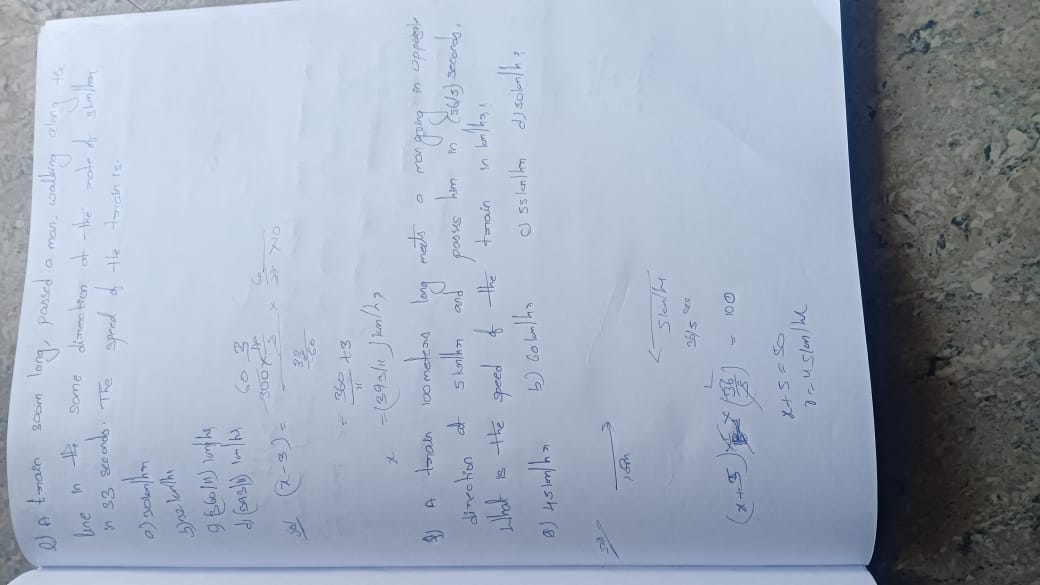 2) A train 300m long, passed a man, walking along the
line in the same direction at the rate of 3km/hr
in 33 seconds. The speed of the train is.
a) 30km/hr
b) 32 km/hr
c) (360/11) km/hr
d) (393/11) km/hr
Sol
(x-3) =
= 360/11 + 3
x = (393/11) km/hr
3) A train 100 meters long meets a man going in opposite
direction at 5 km/hr and passes him in (36/5) seconds.
What is the speed of the train in km/hr?
a) 45 km/hr b) 60 km/hr c) 55 km/hr d) 50km/hr
Sol
5 km/hr
36/5 sec
(x+5) × (36/5) = 100
x+5 = 50
x = 45 km/hr